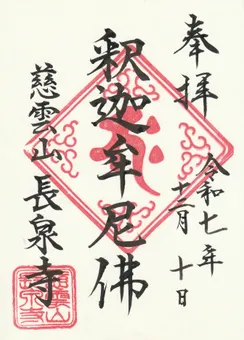 奉拝
令和七年
十二月 十日
釈迦牟尼佛
慈雲山 長泉寺